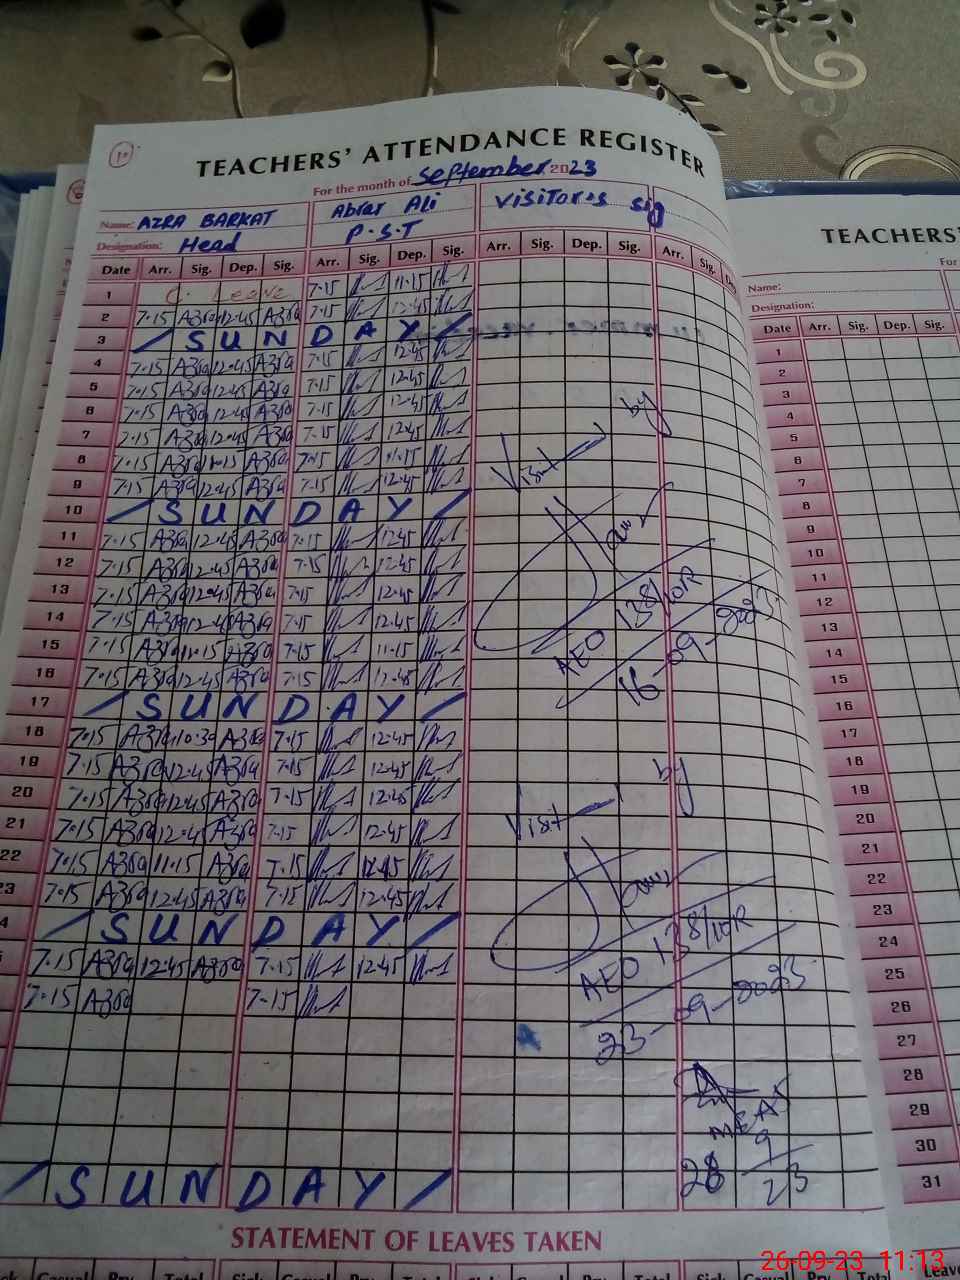 TEACHERS' ATTENDANCE REGISTER
For the month of September 2023
Name: AZRA BARKAT Abrar Ali Visitores sig
Designation: Head P.S.T
Date Arr. Sig. Dep. Sig. Arr. Sig. Dep. Sig. Arr. Sig. Dep. Sig. Arr. Sig.
1 C. Leave 7-15 11-15
2 7-15 12-45 7-15 12-45
3 / SUNDAY /
4 7-15 12-45 7-15 12-45
5 7-15 12-45 7-15 12-45
6 7-15 12-45 7-15 12-45
7 7-15 12-45 7-15 12-45
8 7-15 11-15 7-15 11-15
9 7-15 12-45 7-15 12-45
10 / SUNDAY /
11 7-15 12-45 7-15 12-45
12 7-15 12-45 7-15 12-45
13 7-15 12-45 7-15 12-45
14 7-15 12-45 7-15 12-45
15 7-15 11-15 7-15 11-15
16 7-15 12-45 7-15 12-45
17 / SUNDAY /
18 7-15 10-30 7-15 12-45
19 7-15 12-45 7-15 12-45
20 7-15 12-45 7-15 12-45
21 7-15 12-45 7-15 12-45
22 7-15 11-15 7-15 12-45
23 7-15 12-45 7-15 12-45
/ SUNDAY /
7-15 12-45 7-15 12-45
7-15 7-15
/ SUNDAY /
Visit by
AEO 138/10R
16-09-2023
Visit by
AEO 138/10R
23-09-2023
MEA
9
23
STATEMENT OF LEAVES TAKEN
Casual Total Sick Casual Total
TEACHERS'
For
Name:
Designation:
Date Arr. Sig. Dep. Sig.
1
2
3
4
5
6
7
8
9
10
11
12
13
14
15
16
17
18
19
20
21
22
23
24
25
26
27
28
29
30
31
26-09-23 11:13